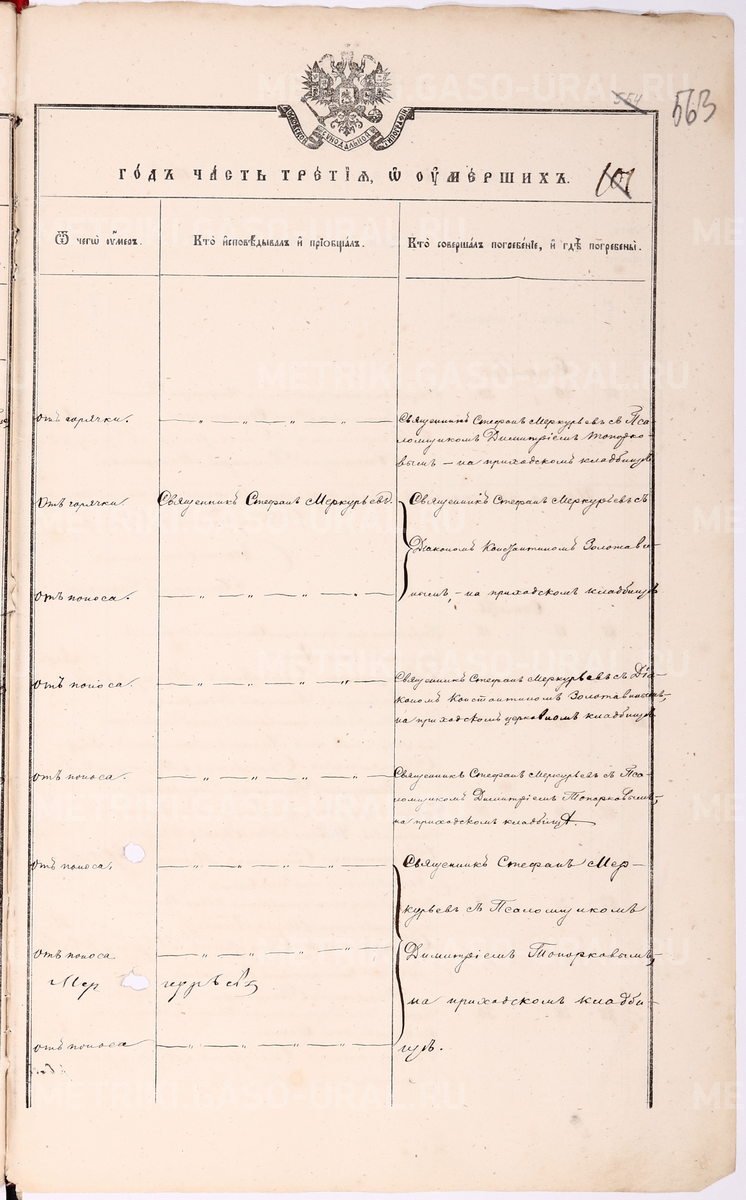 554
563
МОСКОВСКОЙ СѴНОДАЛЬНОЙ ТИПОГРАФІИ
ГО́ДЪ ЧА́СТЬ ТРЕ́ТІѦ, Ѡ҆ ОУ҆МЕ́РШИХЪ.
101
Ѿ чегѡ̀ оу҆́меръ.
Кто̀ и҆сповѣ́дывалъ и҆ прїѡбща́лъ.
Кто̀ соверша́лъ погребе́нїе, и҆ гдѣ̀ погребены̀.
отъ горячки.
— „ — „ — „ — „ —
Священникъ Стефанъ Меркурьевъ съ Пса-
ломщикомъ Димитріемъ Топорко-
вымъ — на приходскомъ кладбищѣ
отъ горячки.
Священникъ Стефанъ Меркурьевъ.
Священникъ Стефанъ Меркурьевъ съ
Діакономъ Константиномъ Золотави-
нымъ, — на приходскомъ кладбищѣ
отъ поноса.
— „ — „ — „ — „ —
отъ поноса.
— „ — „ — „ — „ —
Священникъ Стефанъ Меркурьевъ съ Діа-
кономъ Константиномъ Золотавинымъ,
на приходскомъ церковномъ кладбищѣ
отъ поноса.
— „ — „ — „ — „ —
Священникъ Стефанъ Меркурьевъ съ Пса-
ломщикомъ Димитріемъ Топорковымъ,
на приходскомъ кладбищѣ.
отъ поноса.
— „ — „ — „ — „ —
Священникъ Стефанъ Мер-
курьевъ съ Псаломщикомъ
отъ поноса
— „ — „ — „ — „ —
Димитріемъ Топорковымъ,
Мер
на приходскомъ кладби-
отъ поноса
— „ — „ — „ — „ —
щѣ.
METRIKI.GASO-URAL.RU